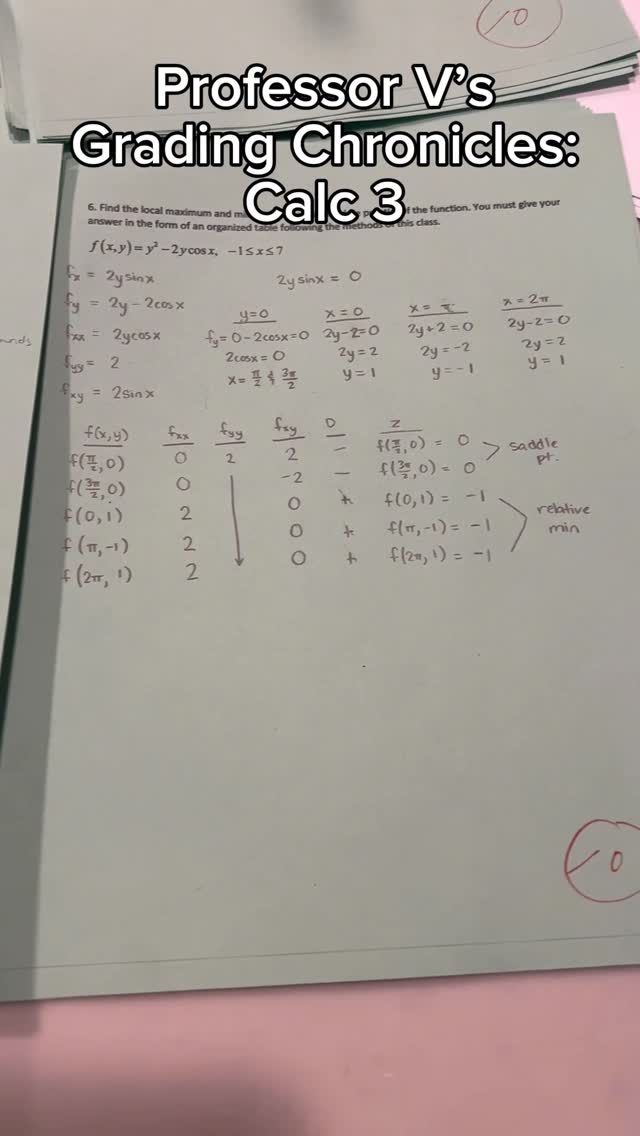 Professor V's
Grading Chronicles:
Calc 3
6. Find the local maximum and mi of the function. You must give your
answer in the form of an organized table following the methods of this class.
f(x,y)=y²-2ycosx, -1≤x≤7
fx = 2ysinx
2ysinx = 0
fy = 2y - 2cosx
fxx = 2ycosx
fyy = 2
fxy = 2sinx
y=0
fy = 0-2cosx=0
2cosx = 0
x = π/2 & 3π/2
x = 0
2y-2=0
2y = 2
y = 1
x = π
2y+2=0
2y = -2
y = -1
x = 2π
2y-2=0
2y = 2
y = 1
f(x,y) fxx fyy fxy D z
f(π/2, 0) 0 2 2 - f(π/2, 0) = 0
f(3π/2, 0) 0 -2 - f(3π/2, 0) = 0
saddle
pt.
f(0, 1) 2 0 + f(0, 1) = -1
f(π, -1) 2 0 + f(π, -1) = -1
f(2π, 1) 2 0 + f(2π, 1) = -1
relative
min
-0
-0